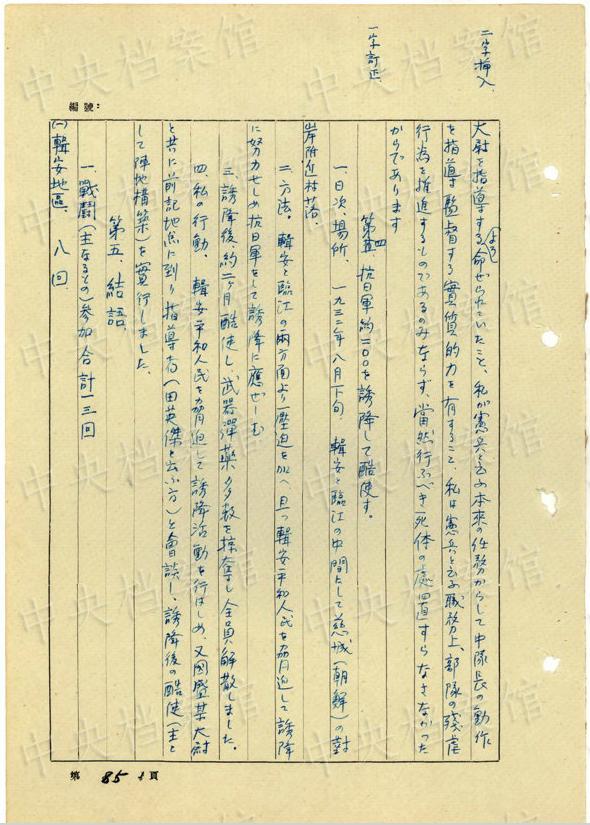 二字挿入
一字訂正
編號：
大尉を指導する
よう
命ぜられていたこと、私が憲兵と云ふ本来の任務からして中隊長の動作
を指導監督する實質的力を有すること、私は憲兵と云ふ職務上、部隊の残虐
行為を推進するものであるのみならず、當然行ふべき死体の處置すらなさなかった
からであります
第四 抗日軍約二〇〇を誘降して酷使す。
一、日次、場所、 一九三二年八月下旬 輯安と臨江の中間として慈城（朝鮮）の對
岸附近村落。
二、方法。 輯安と臨江の兩方面より壓迫を加へ、且つ輯安平和人民を脅迫して誘降
に努力せしめ抗日軍をして誘降に應ぜしむ
三、誘降後約二ヶ月酷使し、武器彈藥多数を掠奪し全員解散しました。
四、私の行動、 輯安平和人民を脅迫して誘降活動を行はしめ、又国盛某大尉
と共に前記地点に到り指導者（田英傑と云ふ方）と會談し、誘降後の酷使（主と
して陣地構築）を實行しました。
第五、結語、
一、戰鬪（主なるもの）参加合計一三回
（一）輯安地區、 八回
第 85 頁
中央档案馆
中央档案馆
中央档案馆
中央档案馆